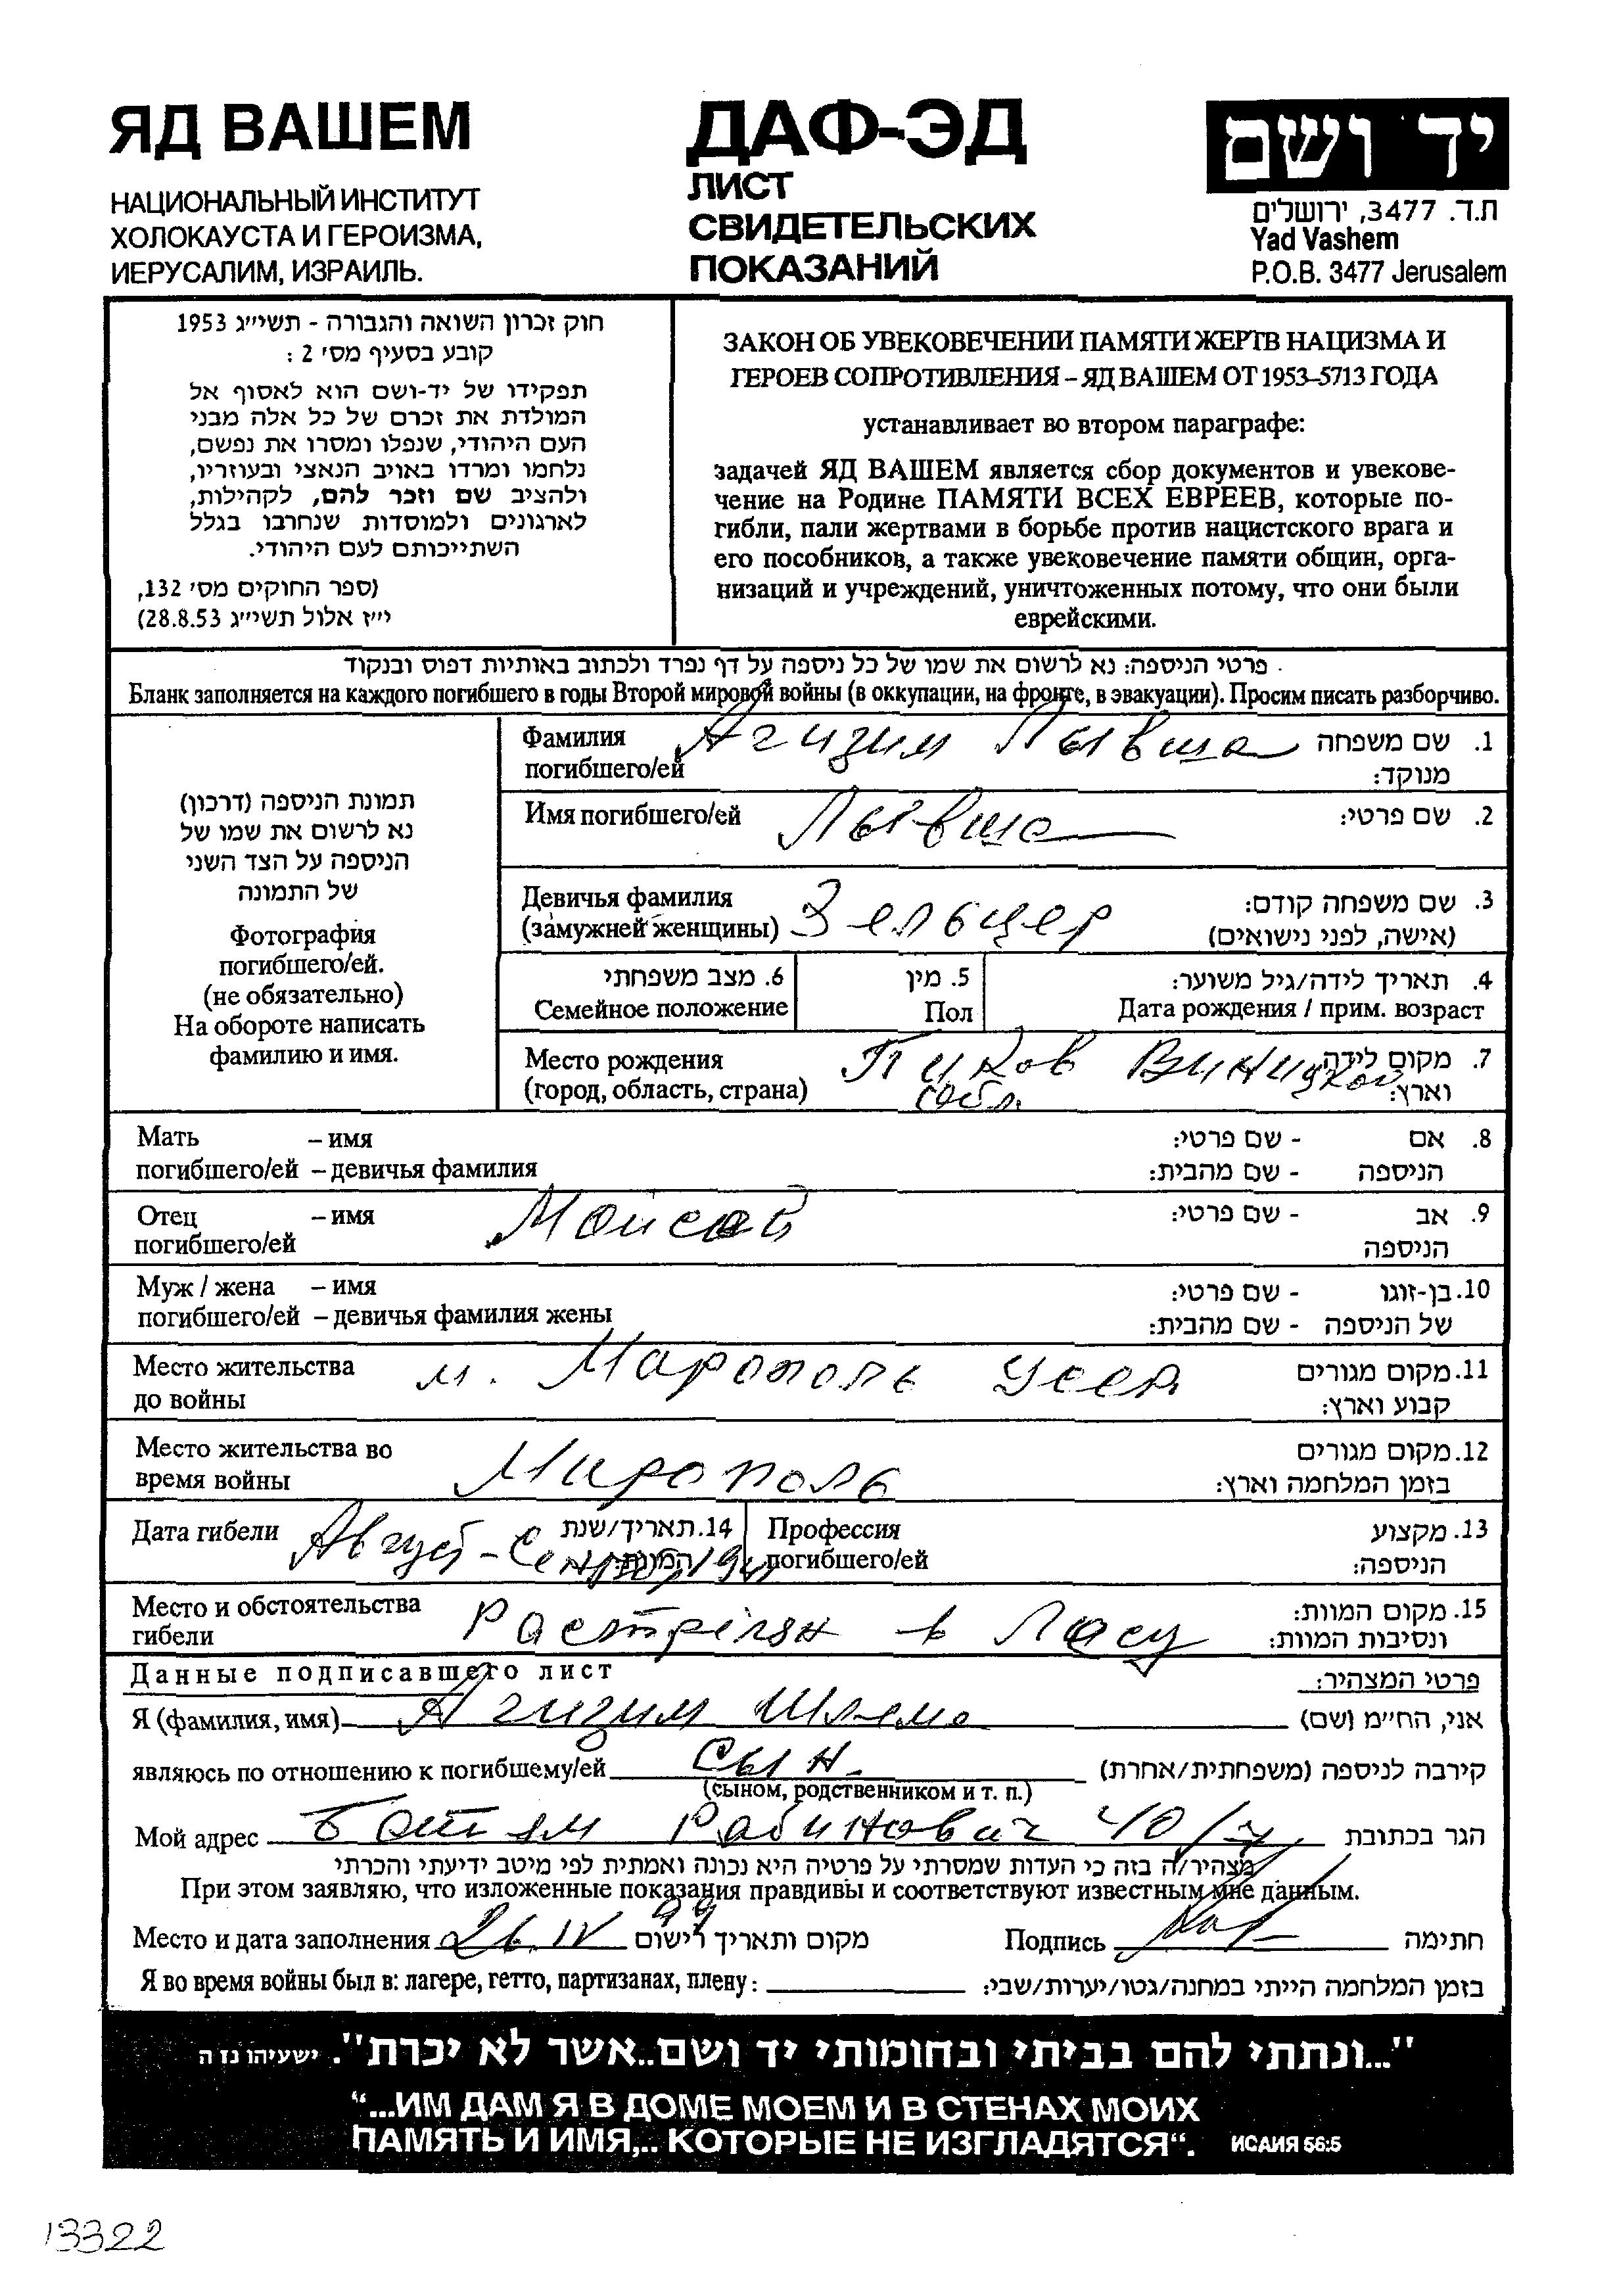 ЯД ВАШЕМ
НАЦИОНАЛЬНЫЙ ИНСТИТУТ
ХОЛОКАУСТА И ГЕРОИЗМА,
ИЕРУСАЛИМ, ИЗРАИЛЬ.
ДАФ-ЭД
ЛИСТ
СВИДЕТЕЛЬСКИХ
ПОКАЗАНИЙ
יד ושם
ת.ד. 3477, ירושלים
Yad Vashem
P.O.B. 3477 Jerusalem
חוק זכרון השואה והגבורה - תשי״ג 1953
קובע בסעיף מס׳ 2 :
תפקידו של יד-ושם הוא לאסוף אל
המולדת את זכרם של כל אלה מבני
העם היהודי, שנפלו ומסרו את נפשם,
נלחמו ומרדו באויב הנאצי ובעוזריו,
ולהציב שם וזכר להם, לקהילות,
לארגונים ולמוסדות שנחרבו בגלל
השתייכותם לעם היהודי.
(ספר החוקים מס׳ 132,
י״ז אלול תשי״ג 28.8.53)
ЗАКОН ОБ УВЕКОВЕЧЕНИИ ПАМЯТИ ЖЕРТВ НАЦИЗМА И
ГЕРОЕВ СОПРОТИВЛЕНИЯ – ЯД ВАШЕМ ОТ 1953–5713 ГОДА
устанавливает во втором параграфе:
задачей ЯД ВАШЕМ является сбор документов и увекове-
чение на Родине ПАМЯТИ ВСЕХ ЕВРЕЕВ, которые по-
гибли, пали жертвами в борьбе против нацистского врага и
его пособников, а также увековечение памяти общин, орга-
низаций и учреждений, уничтоженных потому, что они были
еврейскими.
פרטי הניספה: נא לרשום את שמו של כל ניספה על דף נפרד ולכתוב באותיות דפוס ובנקוד
Бланк заполняется на каждого погибшего в годы Второй мировой войны (в оккупации, на фронте, в эвакуации). Просим писать разборчиво.
תמונת הניספה (דרכון)
נא לרשום את שמו של
הניספה על הצד השני
של התמונה
Фотография
погибшего/ей.
(не обязательно)
На обороте написать
фамилию и имя.
Фамилия Агизим Лывша 1. שם משפחה
погибшего/ей מנוקד:
Имя погибшего/ей Лывша 2. שם פרטי:
Девичья фамилия Зельцер 3. שם משפחה קודם:
(замужней женщины) (אישה, לפני נישואים)
6. מצב משפחתי 5. מין 4. תאריך לידה/גיל משוער:
Семейное положение Пол Дата рождения / прим. возраст
Место рождения Пиков Виницкой 7. מקום לידה
(город, область, страна) обл. וארץ:
Мать – имя 8. אם - שם פרטי:
погибшего/ей – девичья фамилия הניספה - שם מהבית:
Отец – имя Мойсей 9. אב - שם פרטי:
погибшего/ей הניספה
Муж / жена – имя 10. בן-זוגו - שם פרטי:
погибшего/ей – девичья фамилия жены של הניספה - שם מהבית:
Место жительства м. Марополь УссR 11. מקום מגורים
до войны קבוע וארץ:
Место жительства во Мирополь 12. מקום מגורים
время войны בזמן המלחמה וארץ:
Дата гибели Август-Сентябр 1941 14. תאריך/שנת המוות: Профессия 13. מקצוע
погибшего/ей הניספה:
Место и обстоятельства Растрілян в Лесу 15. מקום המוות:
гибели ונסיבות המוות:
Данные подписавшего лист פרטי המצהיר:
Я (фамилия, имя) Агизим Шлема אני, הח״מ (שם)
являюсь по отношению к погибшему/ей Сын. קירבה לניספה (משפחתית/אחרת)
(сыном, родственником и т. п.)
Мой адрес Батям Рабинович 40/7 הגר בכתובת
מצהיר/ה בזה כי העדות שמסרתי על פרטיה היא נכונה ואמתית לפי מיטב ידיעתי והכרתי
При этом заявляю, что изложенные показания правдивы и соответствуют известным мне данным.
Место и дата заполнения 26.IV 99 מקום ותאריך רישום Подпись חתימה
Я во время войны был в: лагере, гетто, партизанах, плену: בזמן המלחמה הייתי במחנה/גטו/יערות/שבי:
"...ונתתי להם בביתי ובחומותי יד ושם..אשר לא יכרת". ישעיהו נז ה
“...ИМ ДАМ Я В ДОМЕ МОЕМ И В СТЕНАХ МОИХ
ПАМЯТЬ И ИМЯ,.. КОТОРЫЕ НЕ ИЗГЛАДЯТСЯ“. ИСАИЯ 56:5
13322